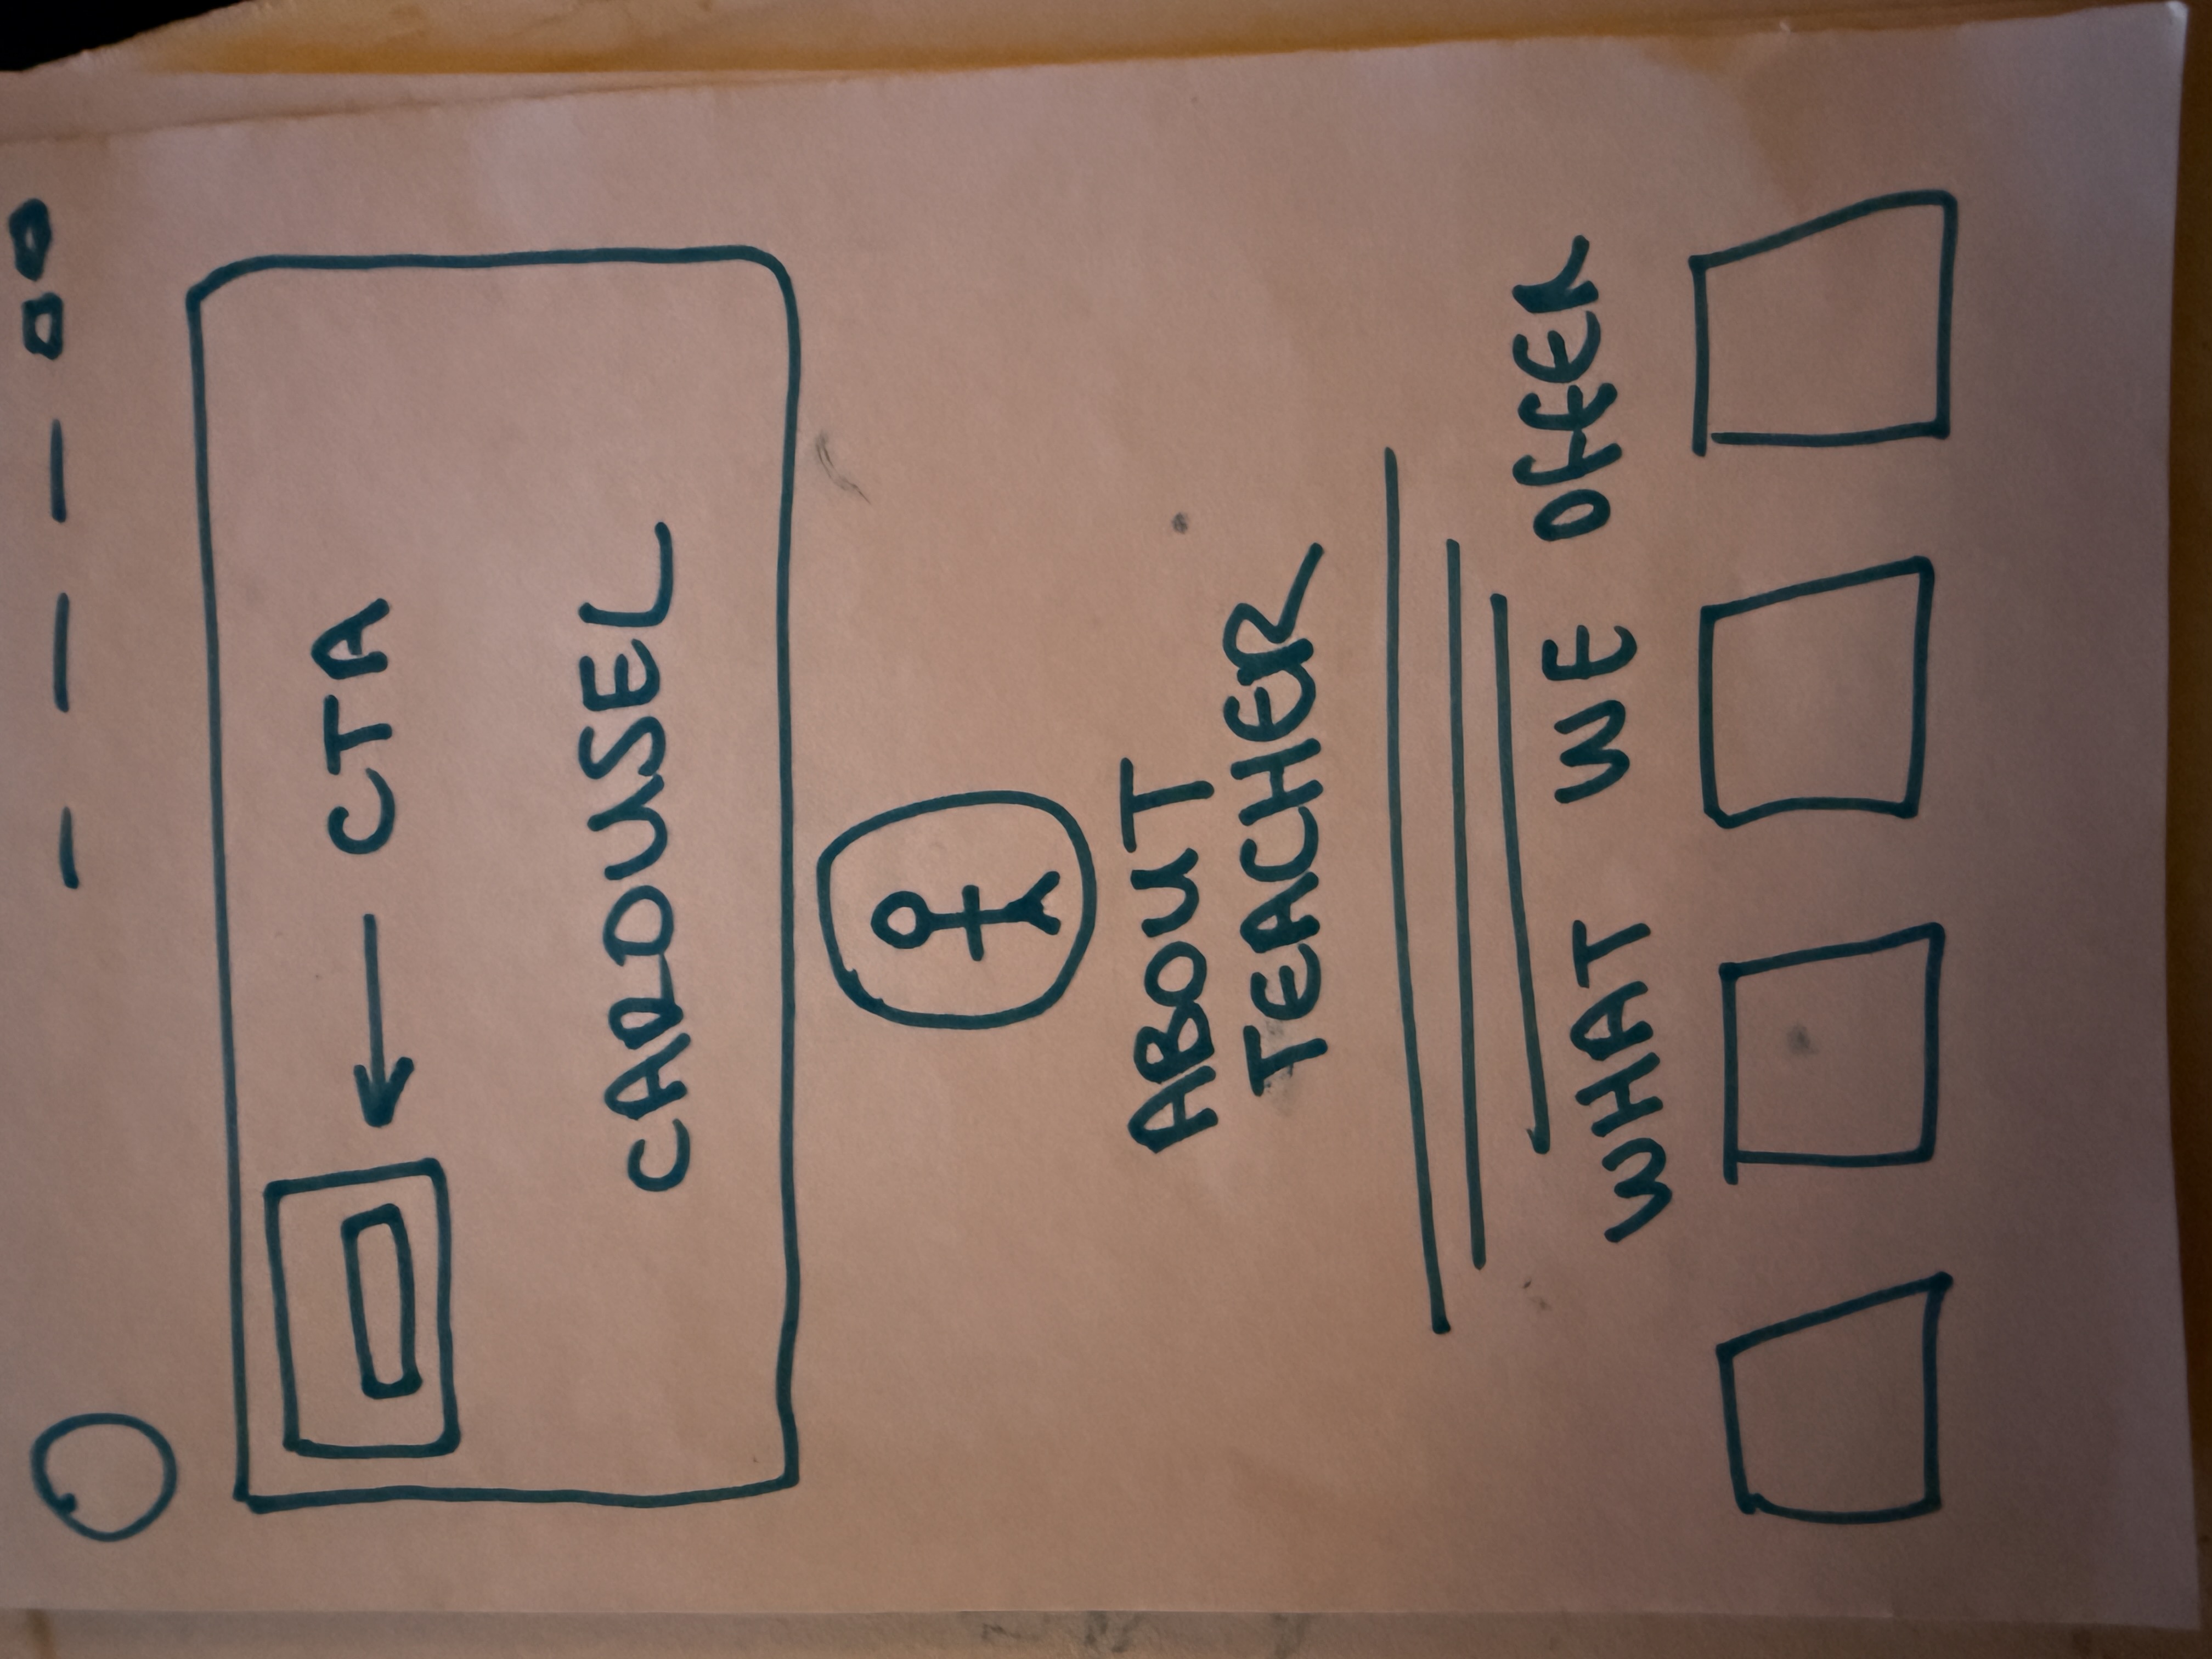 CTA
CAROUSEL
ABOUT
TEACHER
WHAT WE OFFER